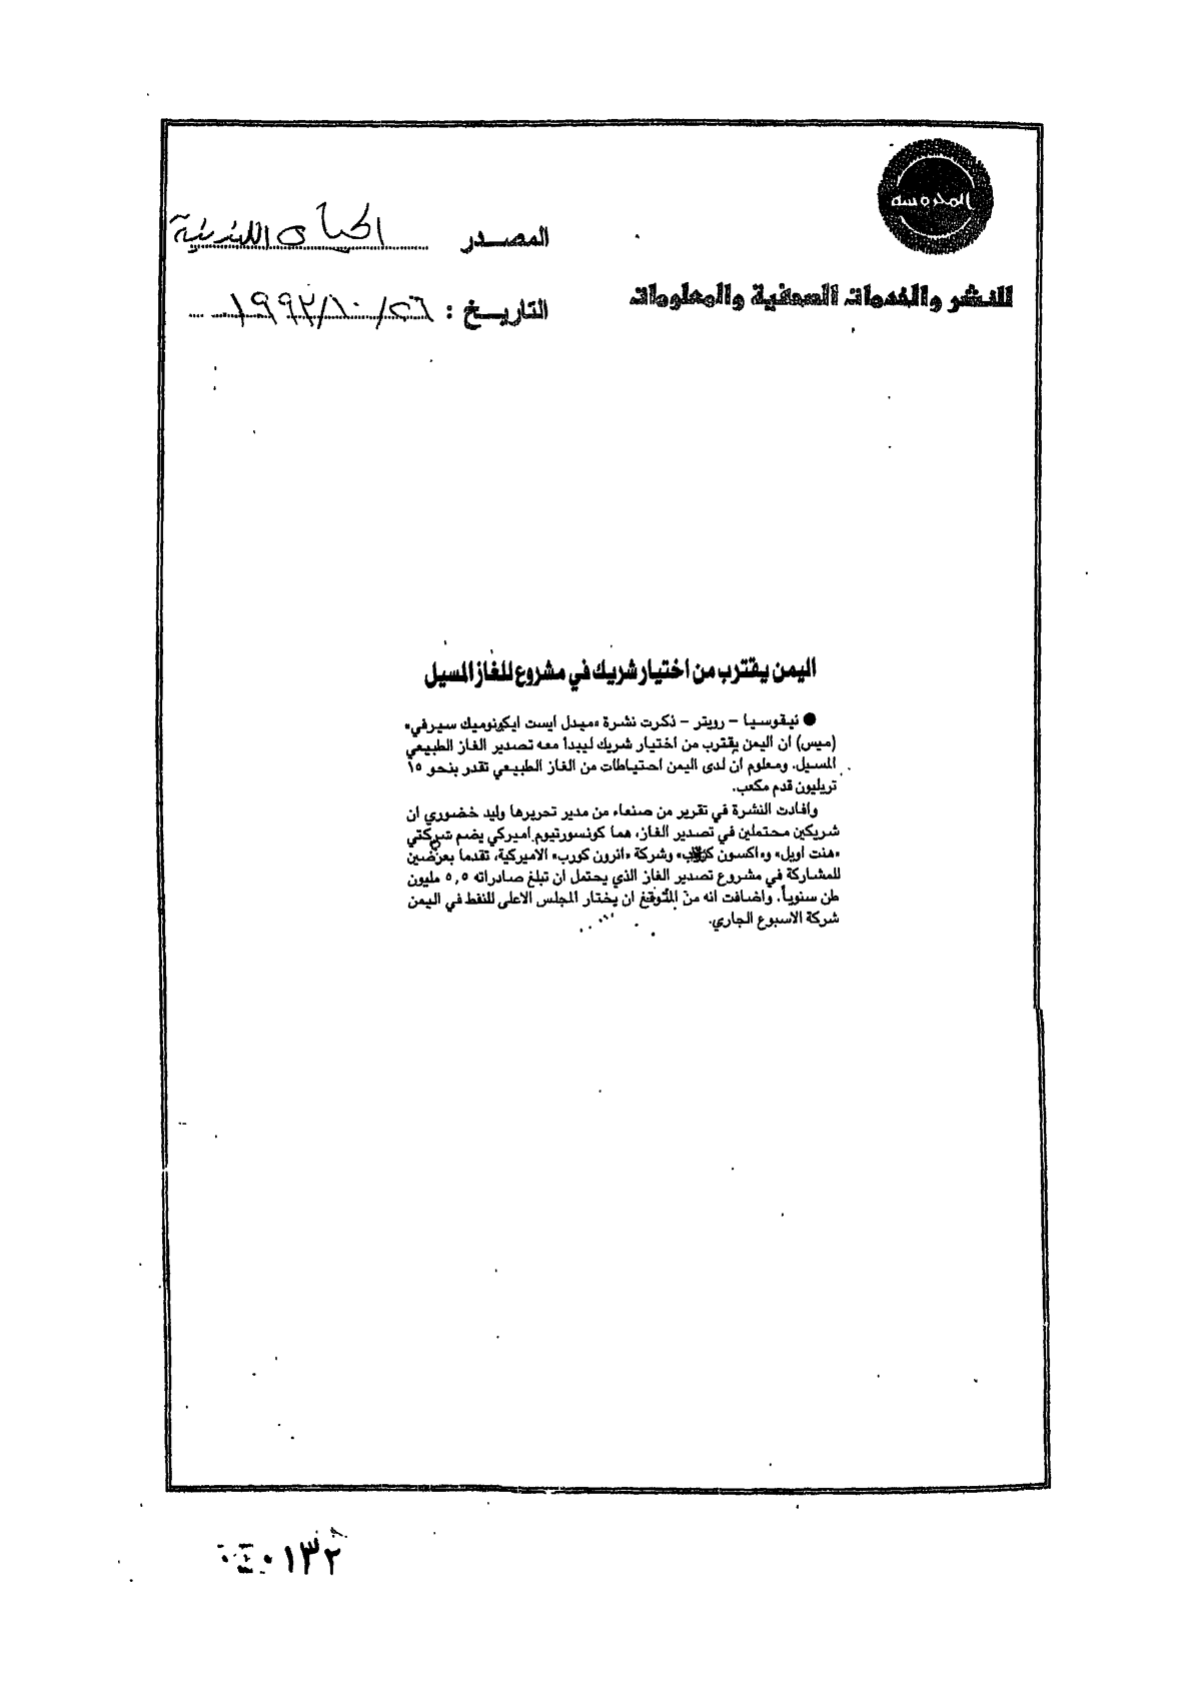 المحروسة
للنشر والخدمات الصحفية والمعلومات
المصدر الحياة اللندنية
التاريخ : ٢٦/١٠/١٩٩٢
اليمن يقترب من اختيار شريك في مشروع للغاز المسيل
● نيقوسيا - رويتر - ذكرت نشرة «ميدل ايست ايكونوميك سيرفي»
(ميس) ان اليمن يقترب من اختيار شريك ليبدأ معه تصدير الغاز الطبيعي
المسيل. ومعلوم ان لدى اليمن احتياطات من الغاز الطبيعي تقدر بنحو ١٥
تريليون قدم مكعب.
وافادت النشرة في تقرير من صنعاء من مدير تحريرها وليد خضوري ان
شريكين محتملين في تصدير الغاز، هما كونسورتيوم اميركي يضم شركتي
«هنت اويل» و«اكسون كورب» وشركة «انرون كورب» الاميركية، تقدما بعرضين
للمشاركة في مشروع تصدير الغاز الذي يحتمل ان تبلغ صادراته ٥,٥ مليون
طن سنوياً. واضافت انه من المتوقع ان يختار المجلس الاعلى للنفط في اليمن
شركة الاسبوع الجاري.